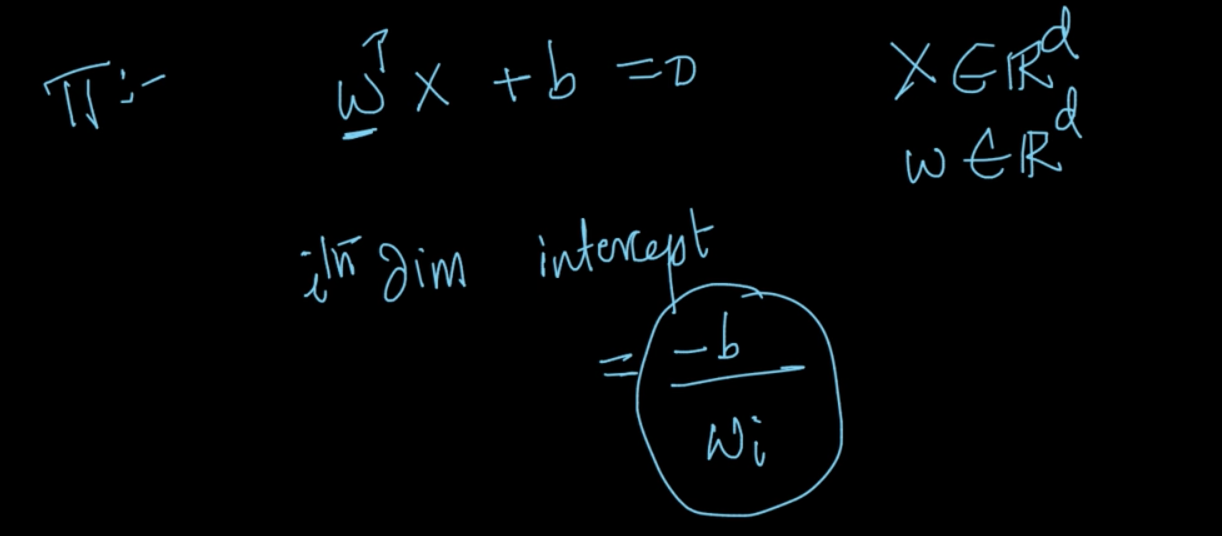 π:- wᵀx + b = 0 x ∈ ℝᵈ
w ∈ ℝᵈ
iᵗʰ dim intercept
= -b / wi